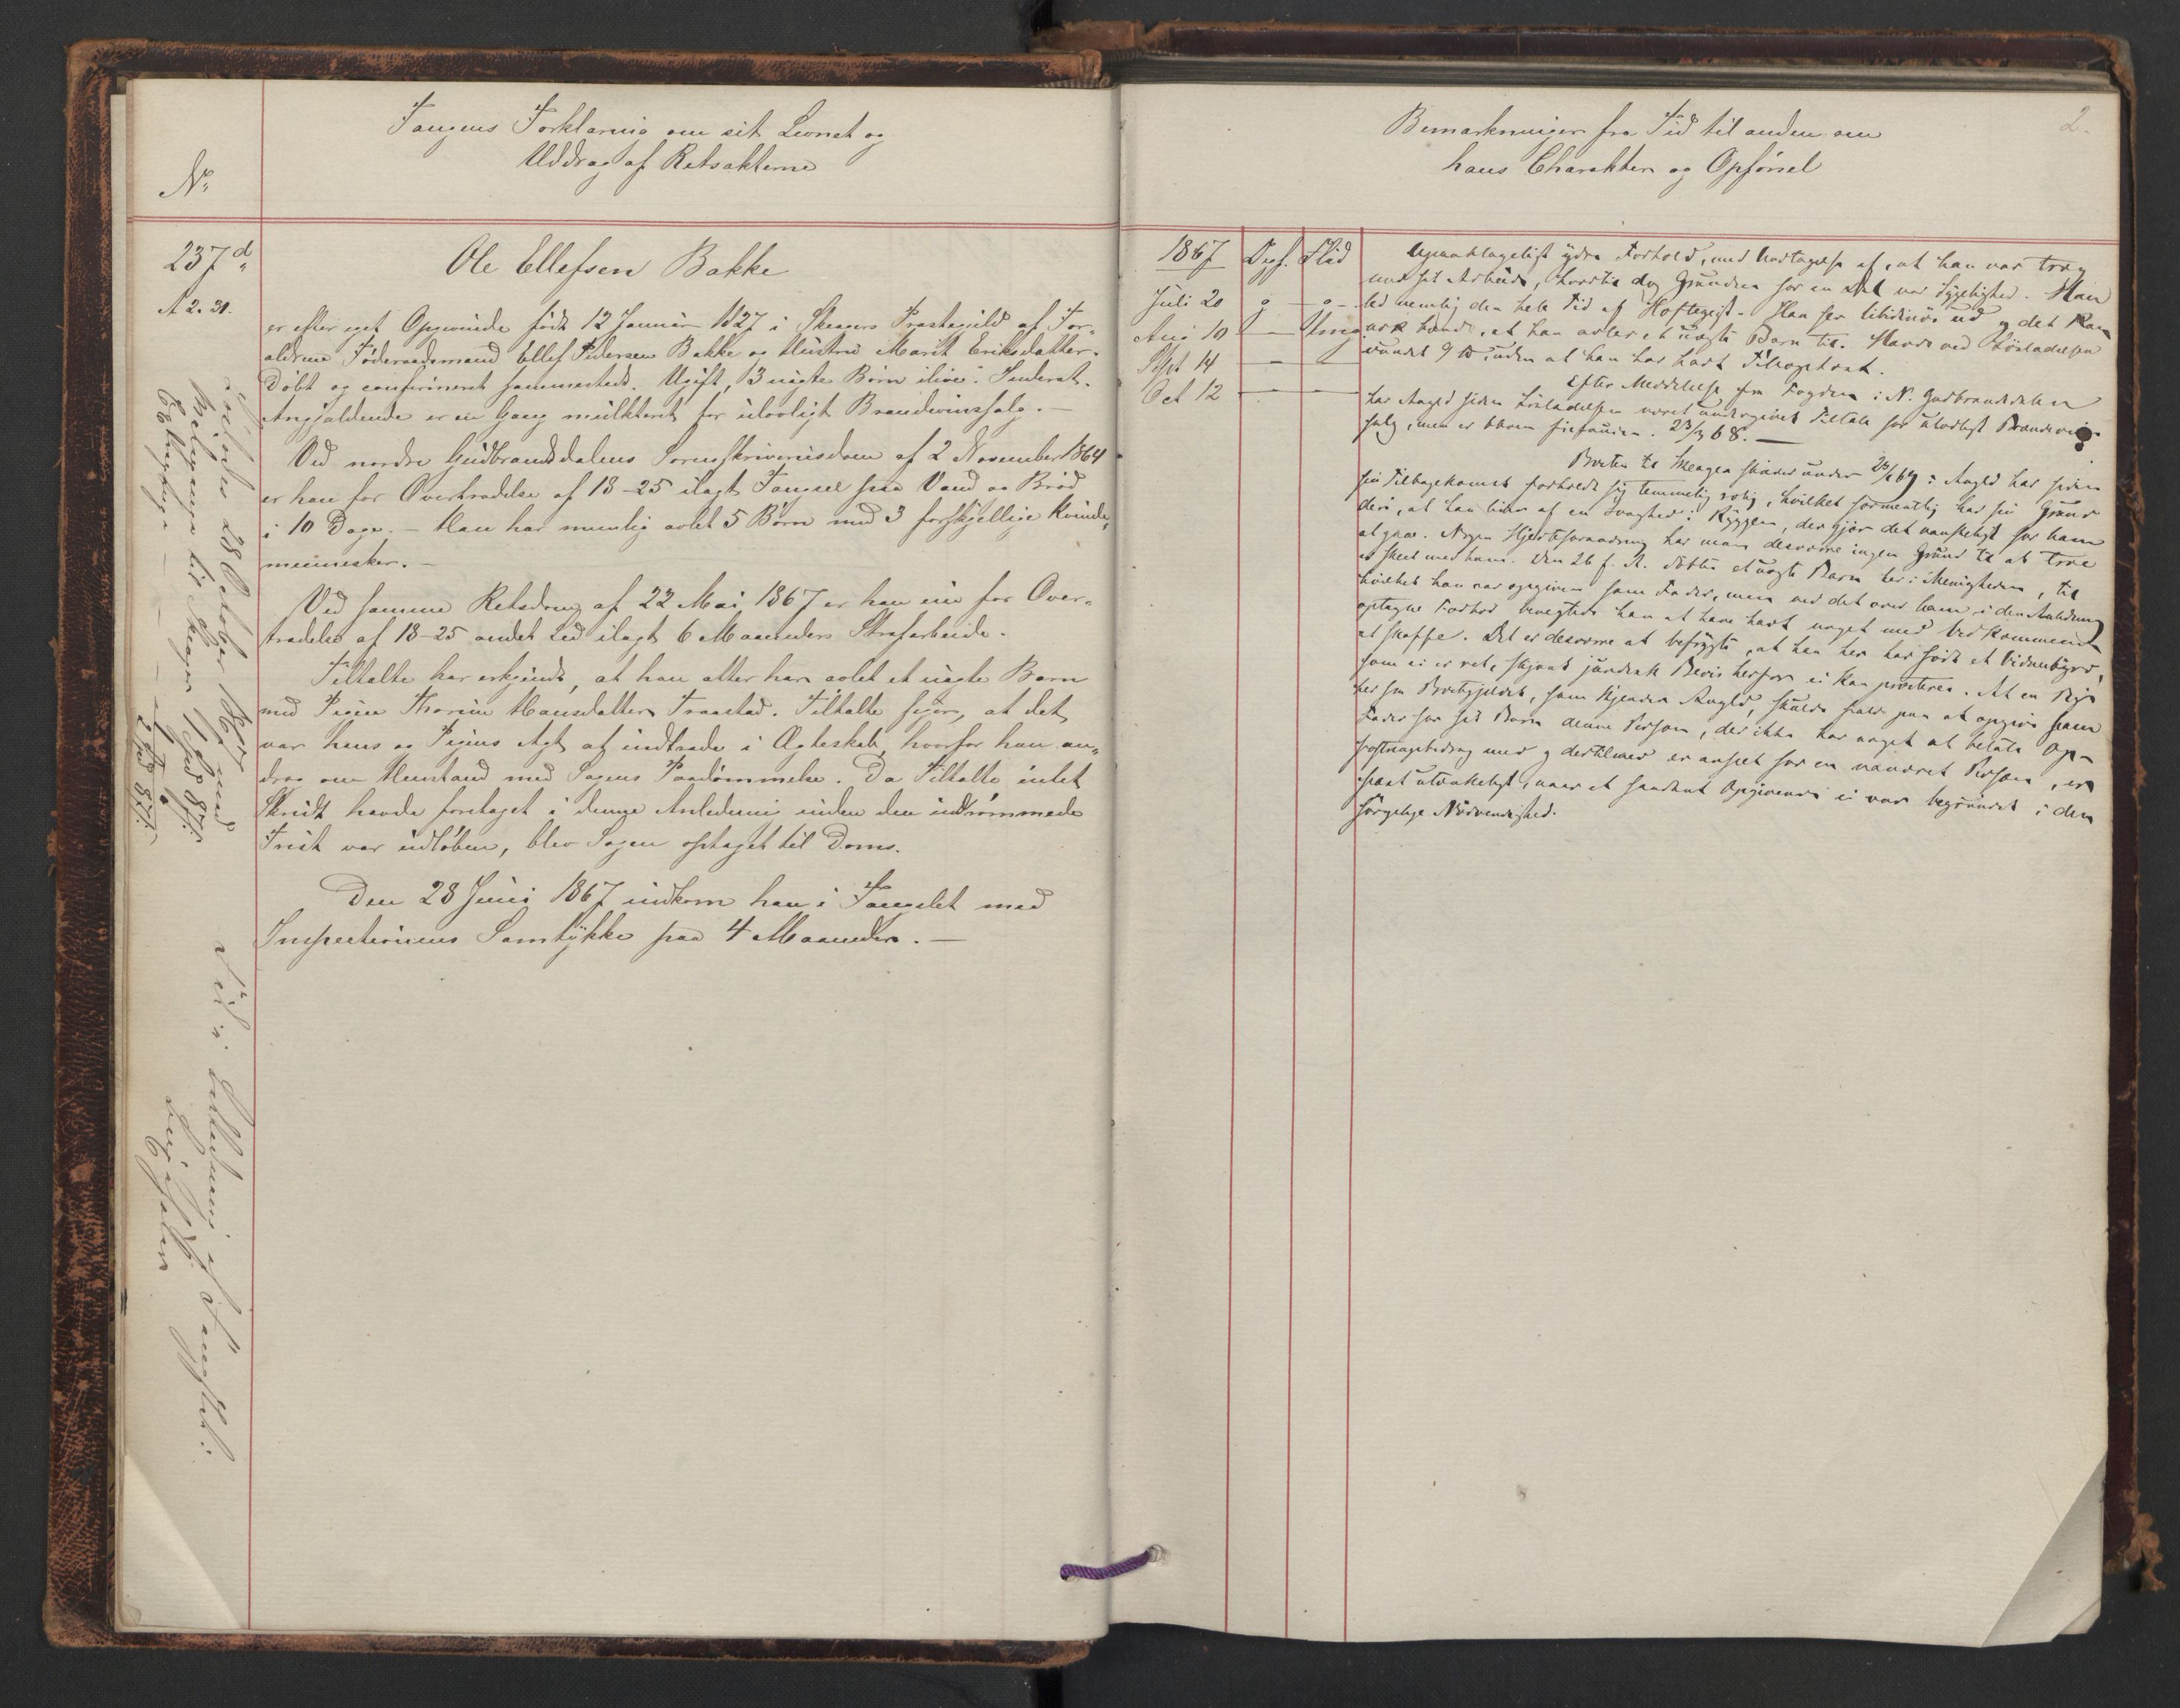 No
Fangens Forklaring om sit Levnet og
Uddrag af Retsakterne
237 d
A 2. 31.
Ole Ellefsen Bakke
er efter eget Opgivende født 12 Januar 1827 i Skeagers Præstegjeld af For-
ældrene Föderaadsmand Ellef Pedersen Bakke og Hustru Marit Eriksdatter.
Döbt og confirmeret sammesteds. Ugift, 3 uægte Börn ilive.
Angjældende er en Gang mulkteret for ulovligt Brændevinssalg. —
Ved nordre Gudbrandsdalens Sorenskriverisdom af 2 November 1864
er han for Overtrædelse af 18-25 ilagt Fængsel paa Vand og Bröd
i 10 Dage. — Han har nemlig avlet 5 Börn med 3 forskjellige Kvinde-
mennesker. —
Ved samme Retsdom af 22 Mai 1867 er han nu for Over-
trædelse af 18-25 andet Led ilagt 6 Maaneders Strafarbeide.
Tiltalte har erkjendt, at han atter har avlet et uægte Barn
med Pigen Thorine Hansdatter Traastad. Tiltalte siger, at det
var hans og Pigens Agt at indtræde i Ægteskab, hvorfor han an-
drog om Henstand med Sagens Paadömmelse. Da Tiltalte intet
Skridt havde foretaget i denne Anledning inden den indrömmede
Frist var udlöben, blev Sagen optaget til Doms.
Den 28 Juni 1867 indkom han i Fængslet med
Inspectionens Samtykke paa 4 Maaneder. —
Löslodes 28 October 1867 med
Betegnelse til Skeager 1 Spd 87 s
2 Spd 87 s.
Bemærkninger fra Tid til anden om
hans Charakter og Opförsel
2.
1867 Opf. Flid
Juli 20 g — g —
Aug 10 — Umg
Sept 14 — —
Oct 12 — —
Upaaklageligt ydre Forhold, med Undtagelse af, at han var træg
med sit Arbeide, hvortil dog Grunden for en Deel var Sygelighed. Han
led nemlig den hele Tid af Hoftegigt. Han ser libidinös ud og det kan
nok hænde, at han avler et uægte Barn til. Havde ved Lösladelsen
vundet 9 uden at han har havt Tilsagtkost.
Efter Meddelelse fra Fogden i N. Gudbrandsdalen
har Angld siden Lösladelsen været undergivet Tiltale for ulovligt Brændevins-
salg, men er bleven frifunden. 23/3 68. —
Præsten til Skeager skriver under 25/1 69: Angld har siden
sin Tilbagekomst forholdt sig temmelig rolig, hvilket formentlig har sin Grund
deri, at han lider af en Svaghed i Ryggen, der gjör det vanskeligt for ham
at gaae. Nogen Hjerteforandring har man desværre ingen Grund til at troe
er skeet med ham. Den 26 f. A. födtes et uægte Barn her i Menigheden, til
hvilket han var opgiven som Fader, men ved det over ham i den Anledning
optagne Forhör benægtede han at have havt noget med Vedkommende
at skaffe. Det er desværre at befrygte, at han her har födt et Vidnesbyrd,
som ei er ret, skjönt juridisk Bevis herfor ei kan præsteres. At en Pige
her fra Præstegjeldet, som kjender Angld, skulde falde paa at opgive som
Fader for sit Barn denne Person, der ikke har noget at betale Op-
fostringsbidrag med og dertilmed er anseet for en vanæret Person, er
næsten utænkeligt, naar et saadant Opgivende ei var begrundet i den
sörgelige Nödvendighed.